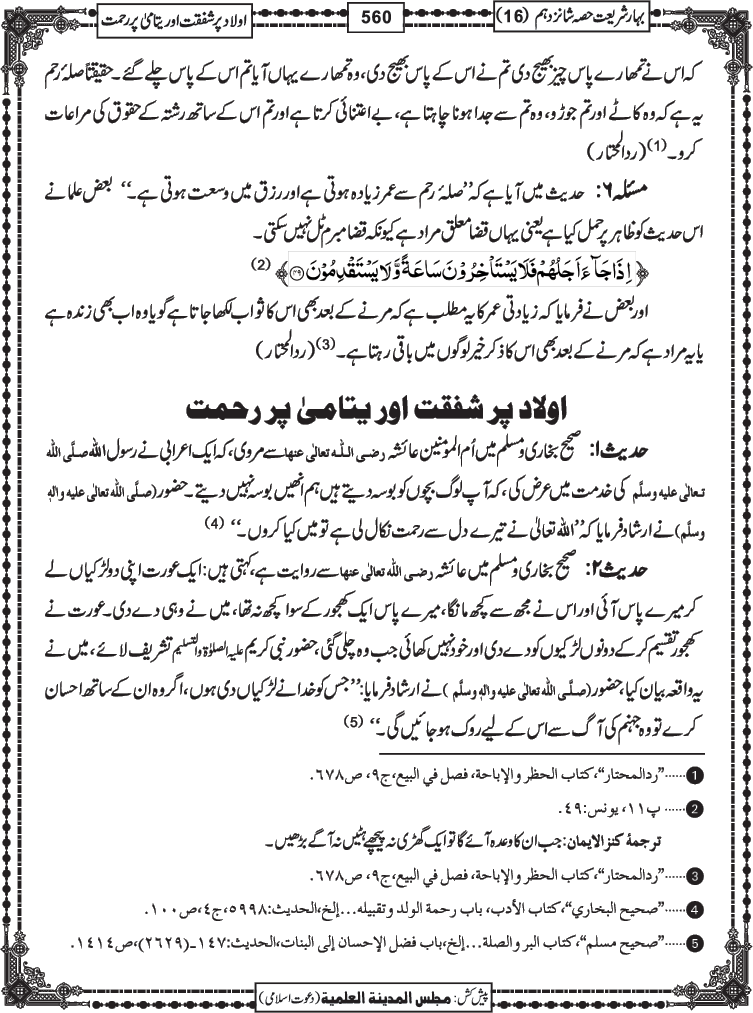 بہارشریعت حصہ شانزدہم (16)
560
اولاد پر شفقت اور یتامیٰ پر رحمت
کہ اس نے تمھارے پاس چیز بھیج دی تم نے اس کے پاس بھیج دی، وہ تمھارے یہاں آیا تم اس کے پاس چلے گئے۔ حقیقتاً صلہ رحم
یہ ہے کہ وہ کاٹے اور تم جوڑو، وہ تم سے جدا ہونا چاہتا ہے، بے اعتنائی کرتا ہے اور تم اس کے ساتھ رشتہ کے حقوق کی مراعات
کرو۔(1) (ردالمحتار)
مسئلہ ۶: حدیث میں آیا ہے کہ ”صلۂ رحم سے عمر زیادہ ہوتی ہے اور رزق میں وسعت ہوتی ہے۔“ بعض علما نے
اس حدیث کو ظاہر پر حمل کیا ہے یعنی یہاں قضا معلق مراد ہے کیونکہ قضا مبرم ٹل نہیں سکتی۔
﴿ اِذَا جَآءَ اَجَلُهُمْ فَلَا یَسْتَاْخِرُوْنَ سَاعَةً وَّ لَا یَسْتَقْدِمُوْنَ ۝۴۹ ﴾ (2)
اور بعض نے فرمایا کہ زیادتی عمر کا یہ مطلب ہے کہ مرنے کے بعد بھی اس کا ثواب لکھا جاتا ہے گویا وہ اب بھی زندہ ہے
یا یہ مراد ہے کہ مرنے کے بعد بھی اس کا ذکر خیر لوگوں میں باقی رہتا ہے۔(3) (ردالمحتار)
اولاد پر شفقت اور یتامیٰ پر رحمت
حدیث ۱: صحیح بخاری و مسلم میں اُم المومنین عائشہ رضی اللہ تعالٰی عنھا سے مروی، کہ ایک اعرابی نے رسول اللہ صلَّی اللہ
تعالٰی علیہ وسلَّم کی خدمت میں عرض کی، کہ آپ لوگ بچوں کو بوسہ دیتے ہیں ہم انھیں بوسہ نہیں دیتے۔ حضور (صلَّی اللہ تعالٰی علیہ والہٖ
وسلَّم) نے ارشاد فرمایا کہ ”اللہ تعالیٰ نے تیرے دل سے رحمت نکال لی ہے تو میں کیا کروں۔“ (4)
حدیث ۲: صحیح بخاری و مسلم میں عائشہ رضی اللہ تعالٰی عنھا سے روایت ہے، کہتی ہیں: ایک عورت اپنی دو لڑکیاں لے
کر میرے پاس آئی اور اس نے مجھ سے کچھ مانگا، میرے پاس ایک کھجور کے سوا کچھ نہ تھا، میں نے وہی دے دی۔ عورت نے
کھجور تقسیم کرکے دونوں لڑکیوں کو دے دی اور خود نہیں کھائی جب وہ چلی گئی، حضور نبی کریم علیہ الصلوٰۃ والتسلیم تشریف لائے، میں نے
یہ واقعہ بیان کیا، حضور (صلَّی اللہ تعالٰی علیہ والہٖ وسلَّم) نے ارشاد فرمایا: ”جس کو خدا نے لڑکیاں دی ہوں، اگر وہ ان کے ساتھ احسان
کرے تو وہ جہنم کی آگ سے اس کے لیے روک ہوجائیں گی۔“ (5)
1......”ردالمحتار“، کتاب الحظر والإباحة، فصل في البیع، ج۹، ص۶۷۸.
2...... پ۱۱، یونس:۴۹.
ترجمۂ کنز الایمان: جب ان کا وعدہ آئے گا تو ایک گھڑی نہ پیچھے ہٹیں نہ آگے بڑھیں۔
3......”ردالمحتار“، کتاب الحظر والإباحة، فصل في البیع، ج۹، ص۶۷۸.
4......”صحیح البخاري“، کتاب الأدب، باب رحمة الولد وتقبیلہ...إلخ، الحدیث:۵۹۹۸، ج۴، ص۱۰۰.
5......”صحیح مسلم“، کتاب البر والصلة...إلخ، باب فضل الإحسان إلی البنات، الحدیث:۱۴۷-(۲۶۲۹)، ص۱۴۱۴.
پیش کش: مجلس المدینة العلمیة (دعوت اسلامی)